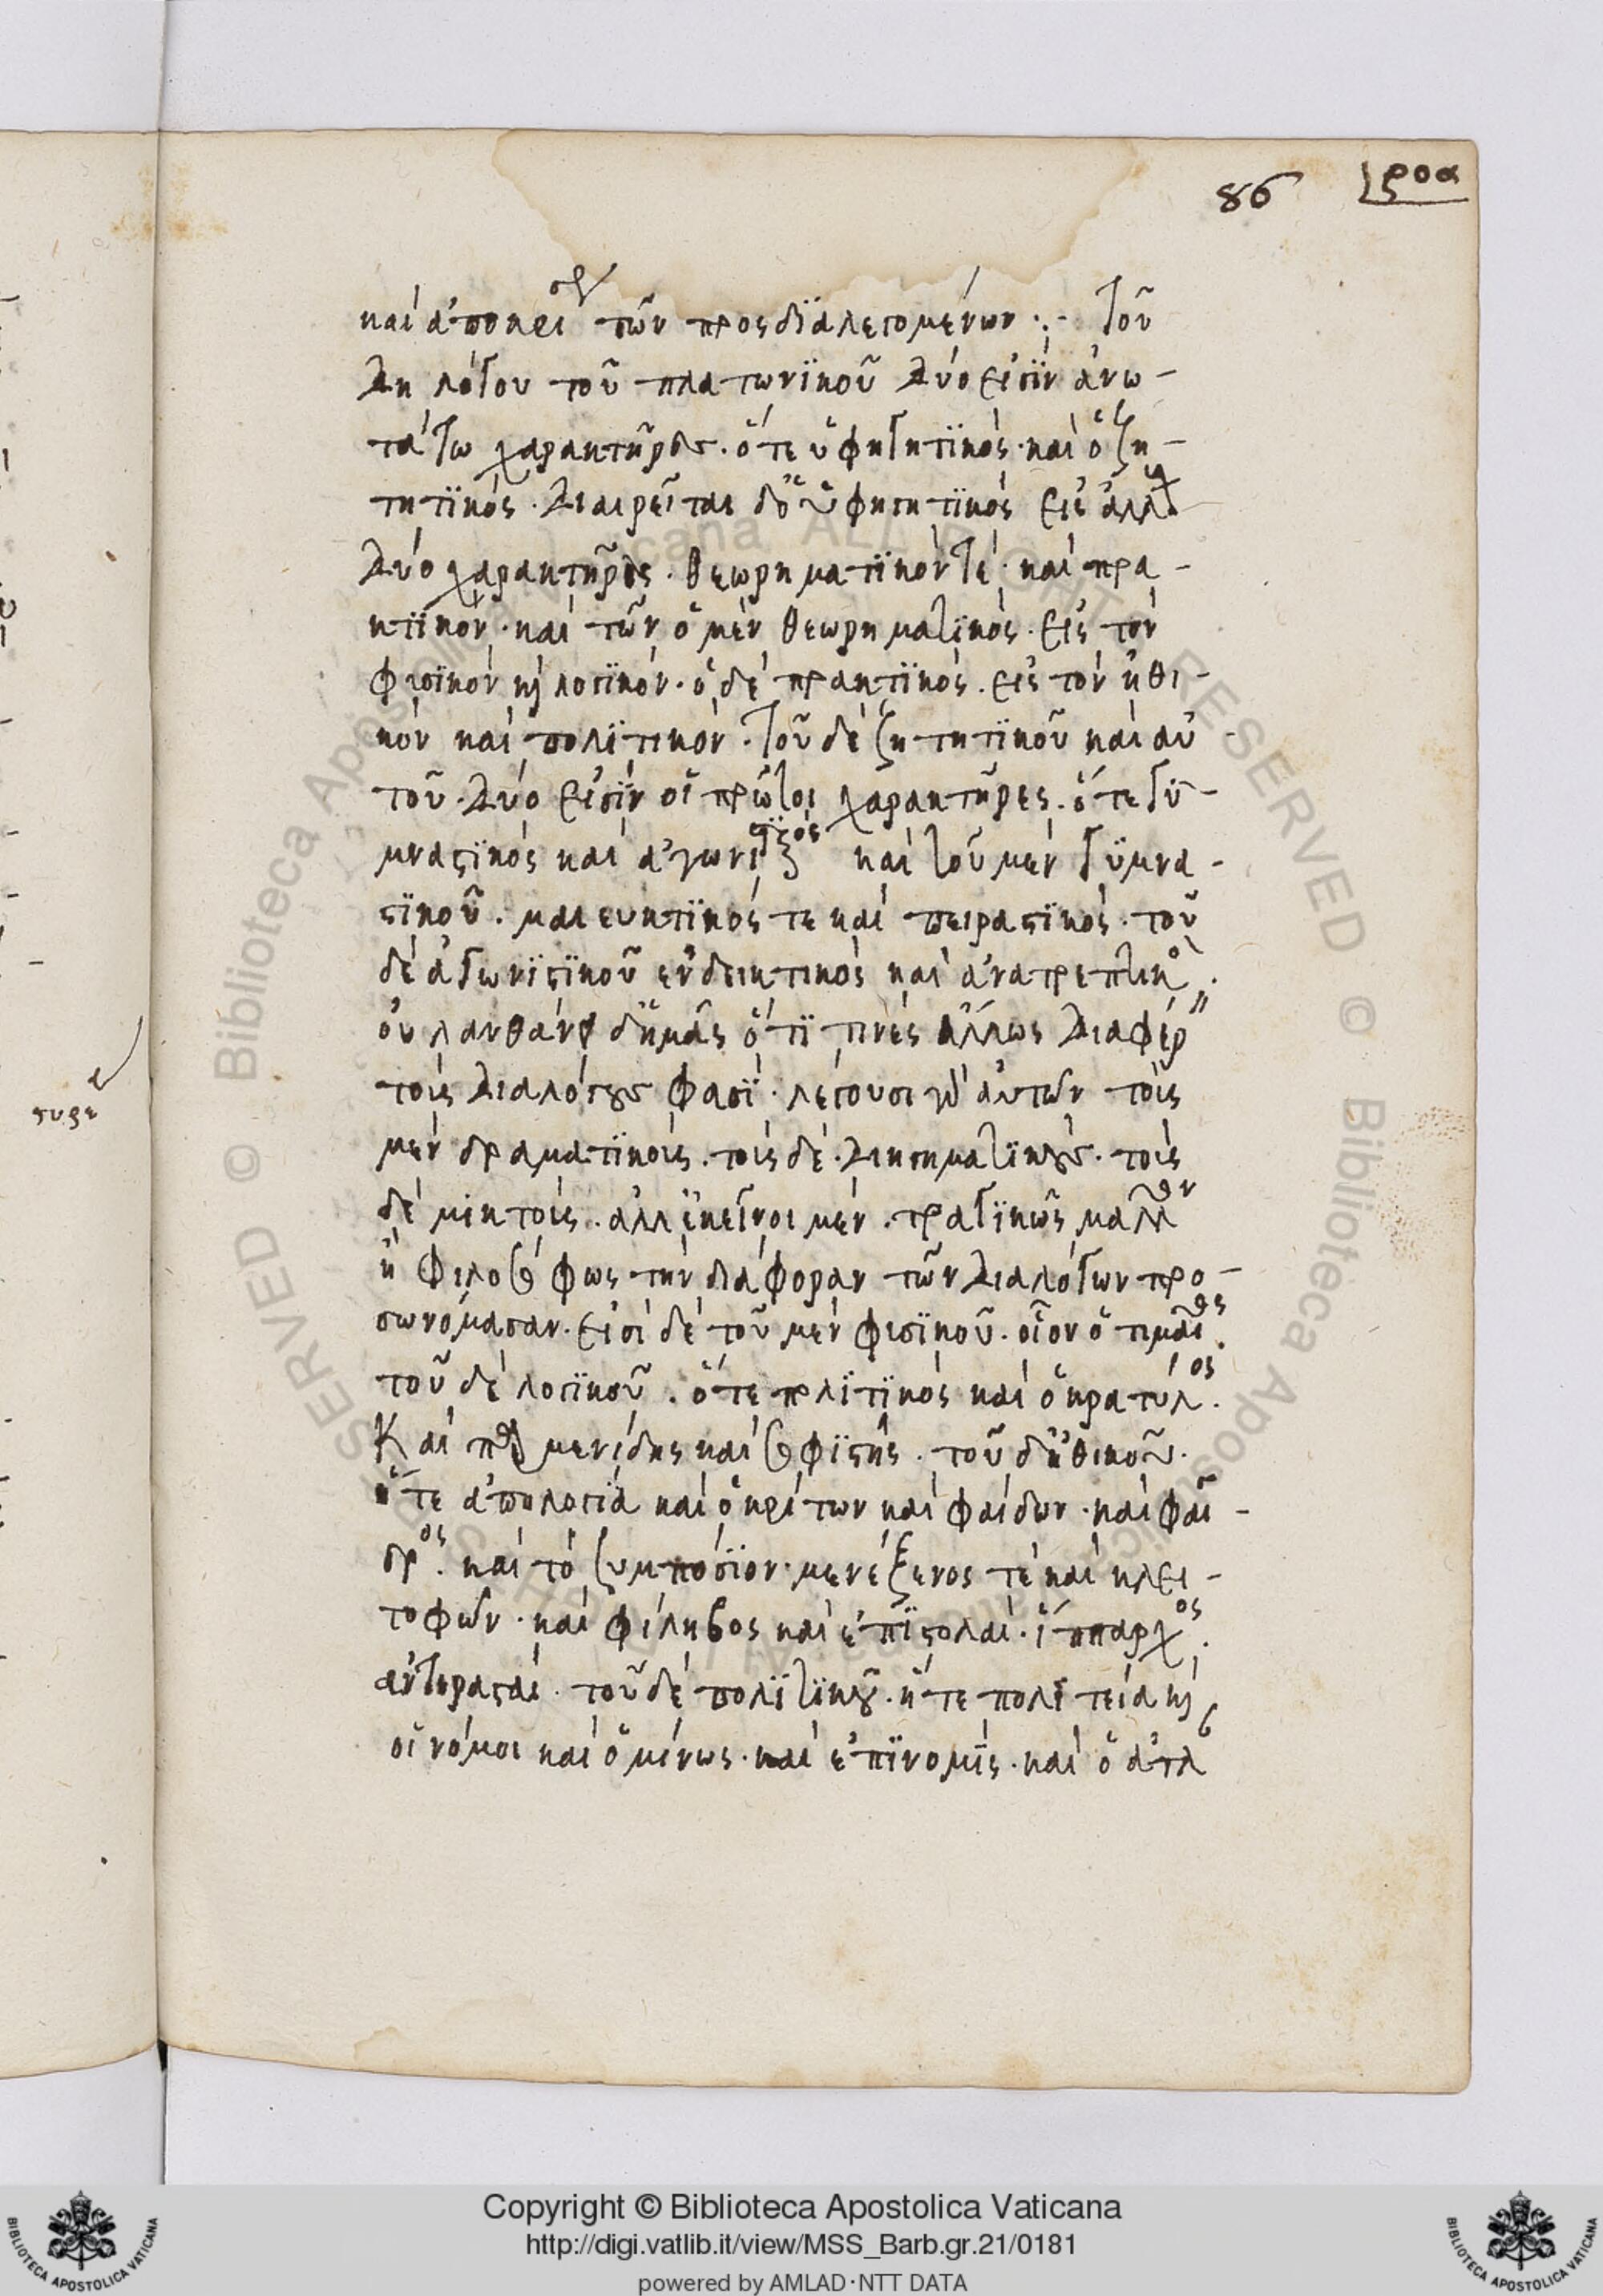 86
ροα
καὶ ἀποκρίσεων τῶν προσδϊαλεγομένων :· Τοῦ
δὴ λόγου τοῦ πλατωνϊκοῦ δύο εἰσϊν ἀνω-
τάτω χαρακτῆρες. ὅτε ὑφηγητϊκὸς. καὶ ὁ ζη-
τητϊκός. διαιρεῖται δὲ ὁ ὑφηγητϊκὸς εἰς ἄλλους
δύο χαρακτῆρας. θεωρηματϊκὸν τὲ. καὶ πρα-
κτϊκὸν. καὶ τῶν ὁ μὲν θεωρηματϊκὸς. εἰς τὸν
φισϊκὸν κὶ λογϊκὸν. ὁ δὲ πρακτϊκὸς. εἰς τὸν ἠθι-
κὸν καὶ πολϊτικὸν. τοῦ δὲ ζητητϊκοῦ καὶ αὐ-
τοῦ. δύο εἰσϊν οἱ πρῶτοι χαρακτῆρες. ὅτε γϋ-
μναστϊκὸς καὶ ἀγωνιστϊκὸς καὶ τοῦ μὲν γϋμνα-
στϊκοῦ. μαιευτϊκὸς τε καὶ πειραστϊκὸς. τοῦ
δὲ ἀγωνϊστϊκοῦ ἐνδεικτικὸς καὶ ἀνατρεπτικὸς.
οὐ λανθάνει δ' ἡμᾶς ὅτϊ τινὲς ἄλλως διαφέρειν
τοὺς διαλόγους φασϊ. λέγουσι γὰρ αὐτῶν τοὺς
μὲν δραματϊκοὺς. τοὺς δὲ. διηγηματϊκοὺς. τοὺς
δὲ μικτοὺς. ἀλλ' ἐκεῖνοι μὲν. τραγϊκῶς μᾶλλον
ἢ φιλοσόφως τὴν διάφοραν τῶν διαλόγων προ-
σωνόμασαν. εἰσὶ δὲ τοῦ μὲν φισϊκοῦ. οἷον ὁ τιμαῖος.
τοῦ δὲ λογϊκοῦ. ὅτε πολϊτϊκὸς καὶ ὁ κρατύλος.
Καὶ παρμενίδης καὶ σοφϊστὴς. τοῦ δ' ἠθικοῦ.
ἥτε ἀπολογϊα καὶ ὁ κρίτων καὶ φαίδων. καὶ φαῖ-
δρος. καὶ τὸ ξυμπόσϊον. μενέξενος τὲ καὶ κλει-
τοφῶν. καὶ φίληβος καὶ ἐπϊστολαὶ. ἵππαρχος.
ἀντερασταὶ. τοῦ δὲ πολϊτϊκοῦ. ἥτε πολϊτεία κὶ
οἱ νόμοι καὶ ὁ μίνως. καὶ ἐπϊνομὶς. καὶ ὁ ἀτλ
Copyright © Biblioteca Apostolica Vaticana
http://digi.vatlib.it/view/MSS_Barb.gr.21/0181
powered by AMLAD·NTT DATA